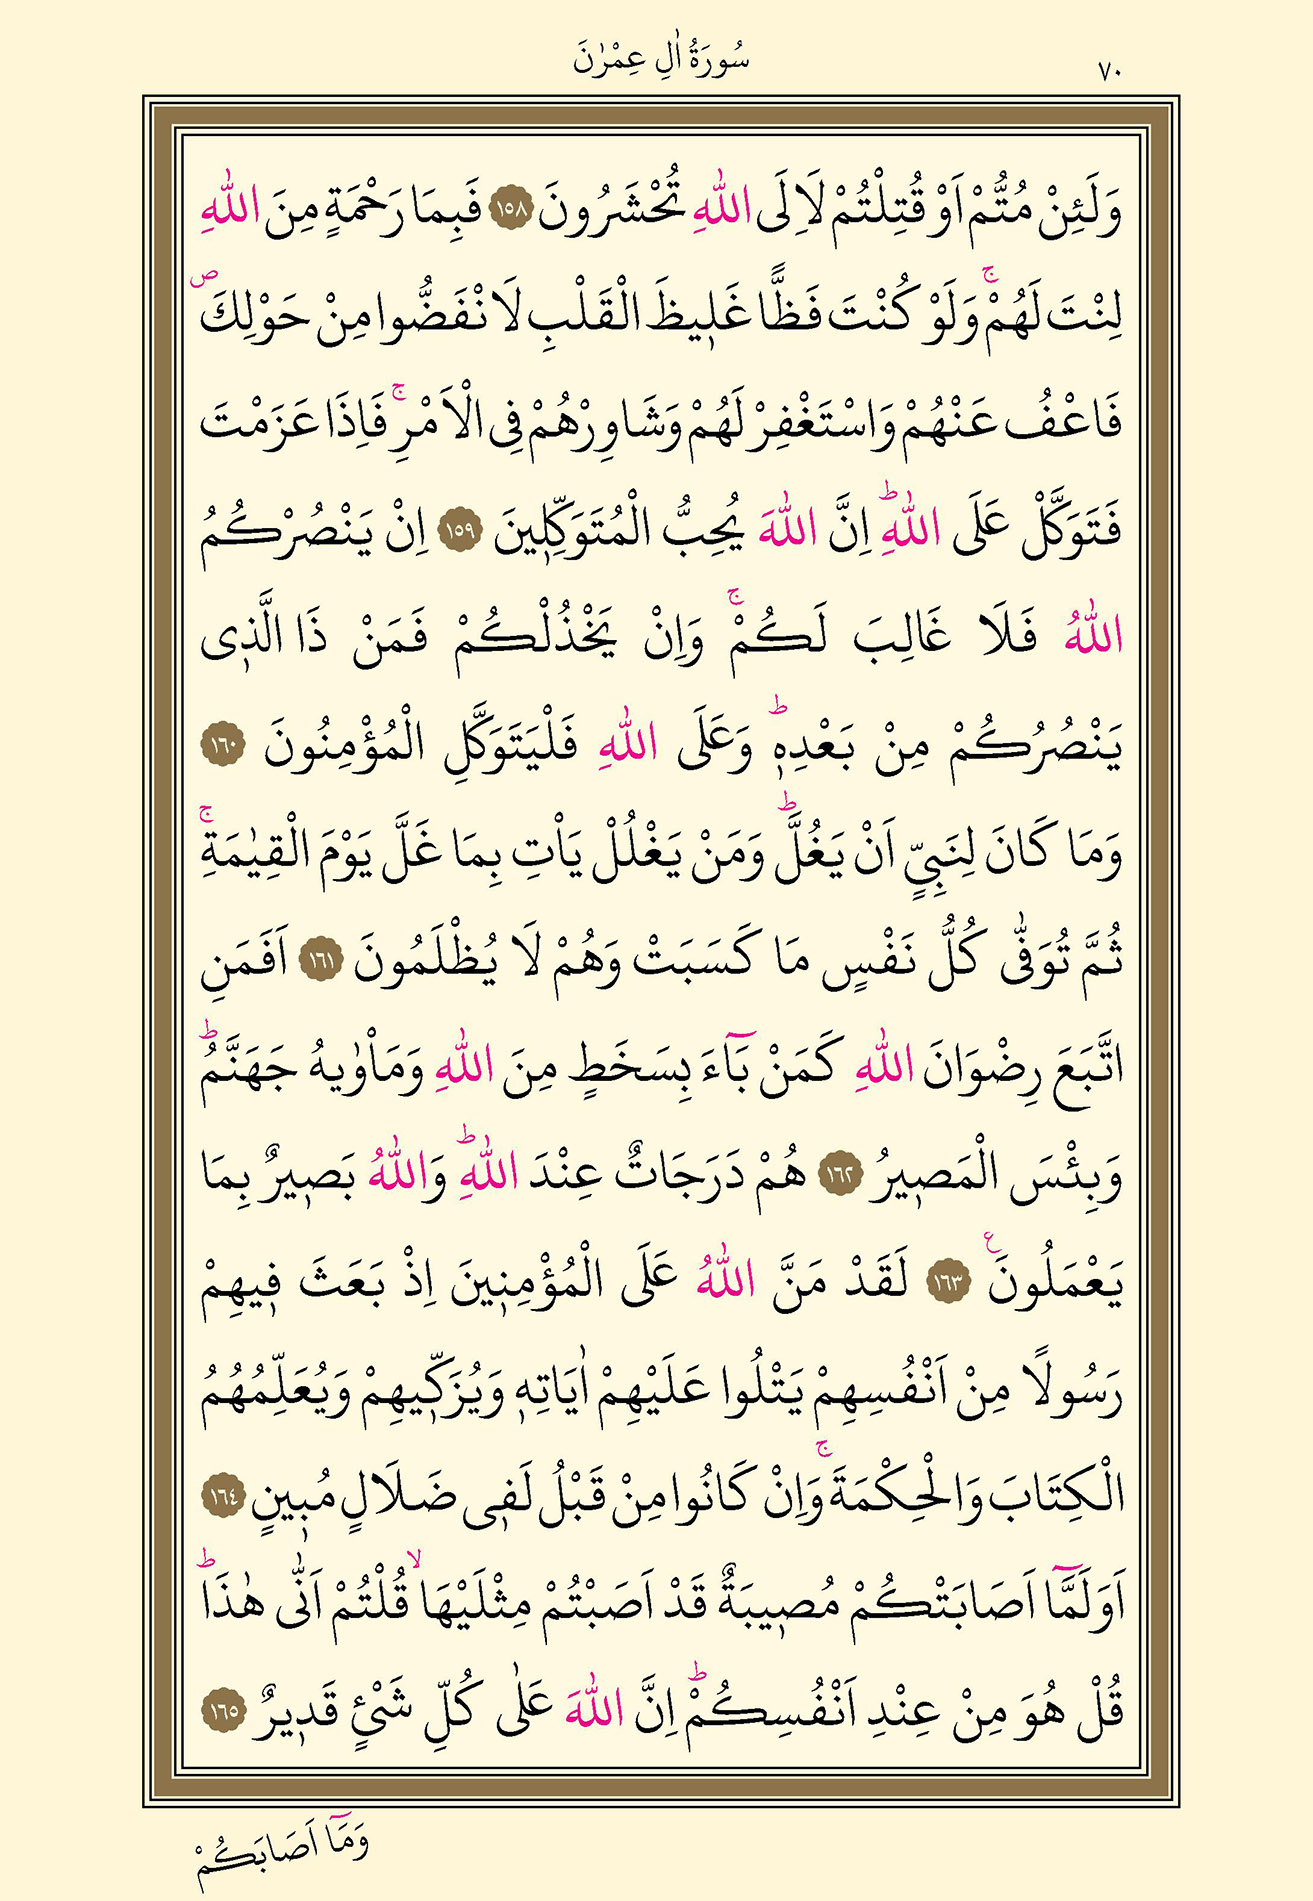 ٧٠
سُورَةُ اٰلِ عِمْرٰنَ
وَلَئِنْ مُتُّمْ اَوْ قُتِلْتُمْ لَاِلَى اللّٰهِ تُحْشَرُونَ ١٥٨ فَبِمَا رَحْمَةٍ مِنَ اللّٰهِ
لِنْتَ لَهُمْۚ وَلَوْ كُنْتَ فَظًّا غَل۪يظَ الْقَلْبِ لَانْفَضُّوا مِنْ حَوْلِكَۖ
فَاعْفُ عَنْهُمْ وَاسْتَغْفِرْ لَهُمْ وَشَاوِرْهُمْ فِى الْاَمْرِۚ فَاِذَا عَزَمْتَ
فَتَوَكَّلْ عَلَى اللّٰهِۜ اِنَّ اللّٰهَ يُحِبُّ الْمُتَوَكِّل۪ينَ ١٥٩ اِنْ يَنْصُرْكُمُ
اللّٰهُ فَلَا غَالِبَ لَكُمْۚ وَاِنْ يَخْذُلْكُمْ فَمَنْ ذَا الَّذ۪ى
يَنْصُرُكُمْ مِنْ بَعْدِه۪ۜ وَعَلَى اللّٰهِ فَلْيَتَوَكَّلِ الْمُؤْمِنُونَ ١٦٠
وَمَا كَانَ لِنَبِيٍّ اَنْ يَغُلَّۜ وَمَنْ يَغْلُلْ يَاْتِ بِمَا غَلَّ يَوْمَ الْقِيٰمَةِۚ
ثُمَّ تُوَفّٰى كُلُّ نَفْسٍ مَا كَسَبَتْ وَهُمْ لَا يُظْلَمُونَ ١٦١ اَفَمَنِ
اتَّبَعَ رِضْوَانَ اللّٰهِ كَمَنْ بَٓاءَ بِسَخَطٍ مِنَ اللّٰهِ وَمَاْوٰيهُ جَهَنَّمُۜ
وَبِئْسَ الْمَص۪يرُ ١٦٢ هُمْ دَرَجَاتٌ عِنْدَ اللّٰهِۜ وَاللّٰهُ بَص۪يرٌ بِمَا
يَعْمَلُونَ ع ١٦٣ لَقَدْ مَنَّ اللّٰهُ عَلَى الْمُؤْمِن۪ينَ اِذْ بَعَثَ ف۪يهِمْ
رَسُولًا مِنْ اَنْفُسِهِمْ يَتْلُوا عَلَيْهِمْ اٰيَاتِه۪ وَيُزَكّ۪يهِمْ وَيُعَلِّمُهُمُ
الْكِتَابَ وَالْحِكْمَةَۚ وَاِنْ كَانُوا مِنْ قَبْلُ لَف۪ى ضَلَالٍ مُب۪ينٍ ١٦٤
اَوَلَمَّٓا اَصَابَتْكُمْ مُص۪يبَةٌ قَدْ اَصَبْتُمْ مِثْلَيْهَاۙ قُلْتُمْ اَنّٰى هٰذَاۜ
قُلْ هُوَ مِنْ عِنْدِ اَنْفُسِكُمْۜ اِنَّ اللّٰهَ عَلٰى كُلِّ شَيْءٍ قَد۪يرٌ ١٦٥
وَمَٓا اَصَابَكُمْ